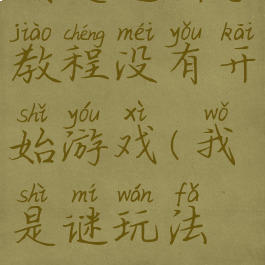 jiào chéng méi yǒu kāi
教程没有开
shǐ yóu xì wǒ
始游戏(我
shì mí wán fǎ
是谜玩法